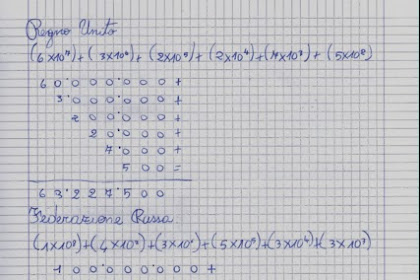 Regno Unito
(6x10⁷)+(3x10⁶)+(2x10⁵)+(2x10⁴)+(7x10³)+(5x10²)
60.000.000+
3.000.000+
200.000+
20.000+
7.000+
500=
63.227.500
Federazione Russa
(1x10⁸)+(4x10⁷)+(3x10⁶)+(5x10⁵)+(3x10⁴)+(3x10³)
100.000.000+